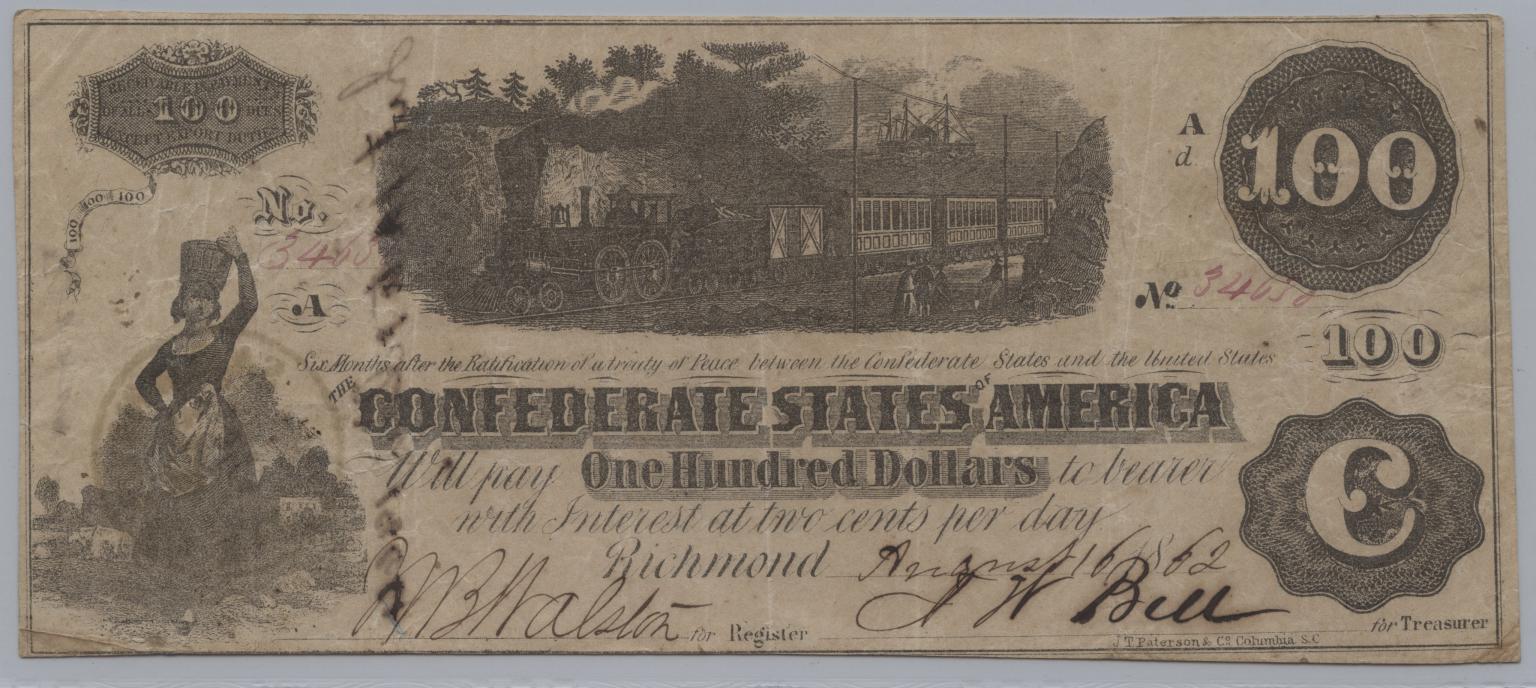 RECEIVABLE IN PAYMENT
OF ALL 100 DUES
EXCEPT EXPORT DUTIES
100 100 100
No.
A
A
d.
100
No
34630
100
Six Months after the Ratification of a treaty of Peace between the Confederate States and the United States
THE CONFEDERATE STATES OF AMERICA
Will pay One Hundred Dollars to bearer
with Interest at two cents per day
Richmond August 16 1862
C
for Register
J W Bell
for Treasurer
J T Paterson & Co Columbia S.C